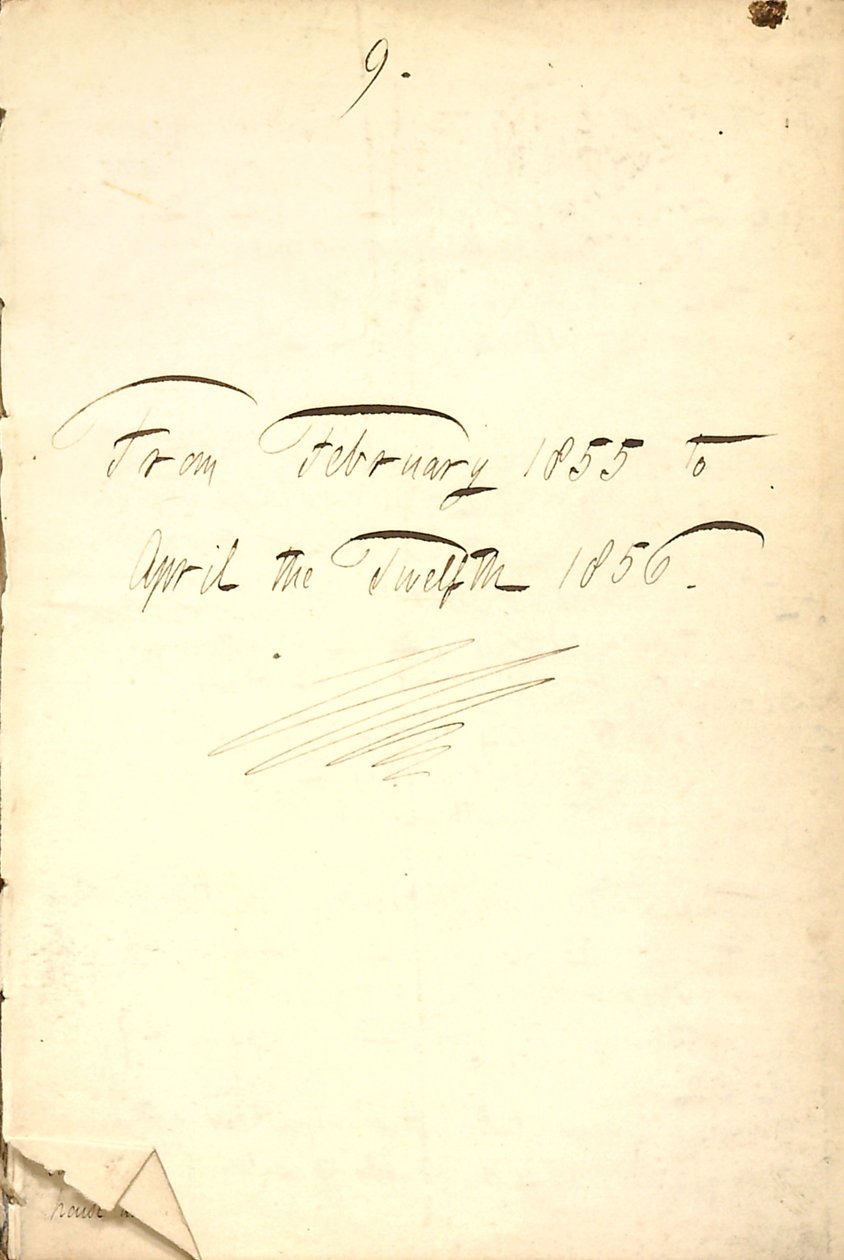 9.
From February 1855 to
April the Twelfth 1856.